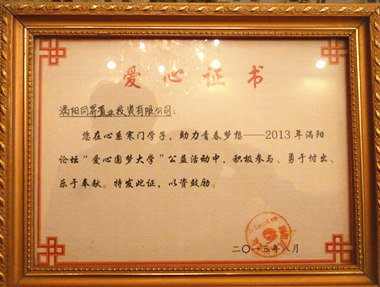 爱心证书
涡阳同昇置业投资有限公司:
您在心系寒门学子，助力青春梦想——2013年涡阳
论坛“爱心圆梦大学”公益活动中，积极参与、勇于付出、
乐于奉献。特发此证，以资鼓励。
二〇一三年八月